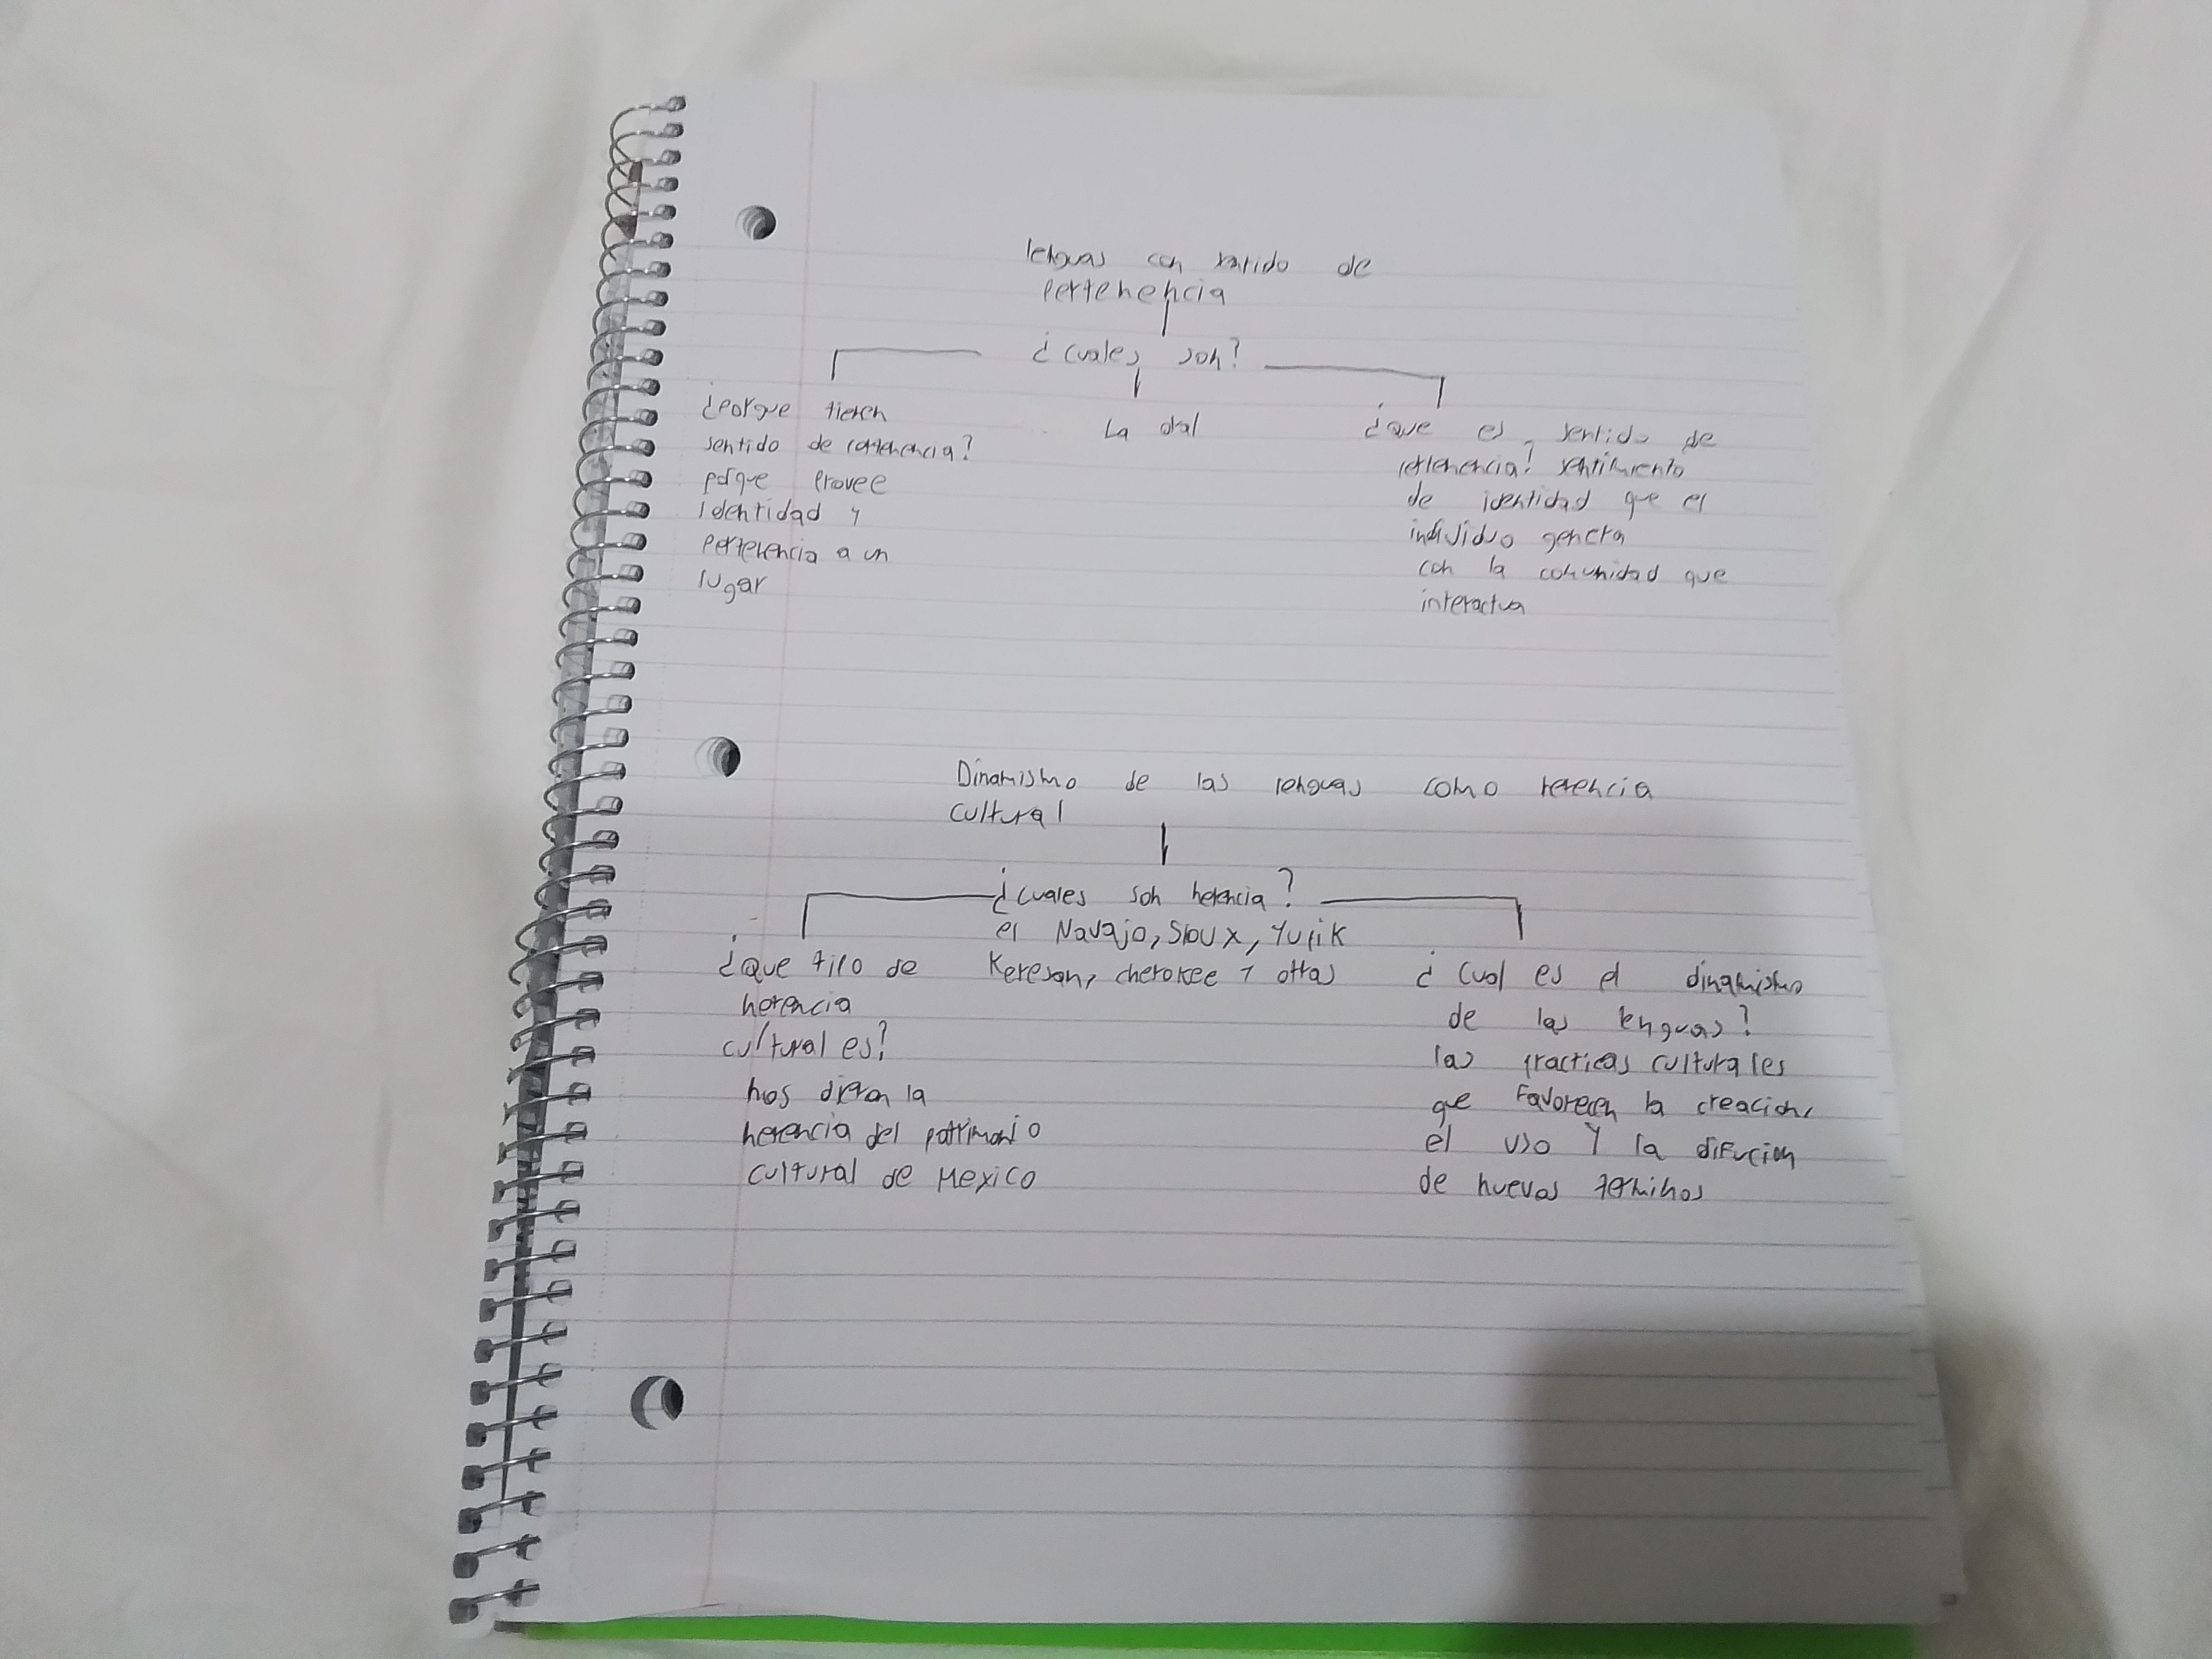 lenguas con sentido de
pertenencia
¿cuales son?
¿porque tienen
sentido de pertenencia?
porque provee
identidad y
pertenencia a un
lugar
La oral
¿que es sentido de
pertenencia? sentimiento
de identidad que el
individuo genera
con la comunidad que
interactua
Dinamismo de las lenguas como herencia
cultural
¿cuales son herencia?
el Navajo, Sioux, Yupik
Keresan, cherokee y otras
¿que tipo de
herencia
cultural es?
nos dieron la
herencia del patrimonio
cultural de Mexico
¿cual es el dinamismo
de las lenguas?
las practicas culturales
que Favorecen la creacion,
el uso Y la diFucion
de nuevos terminos